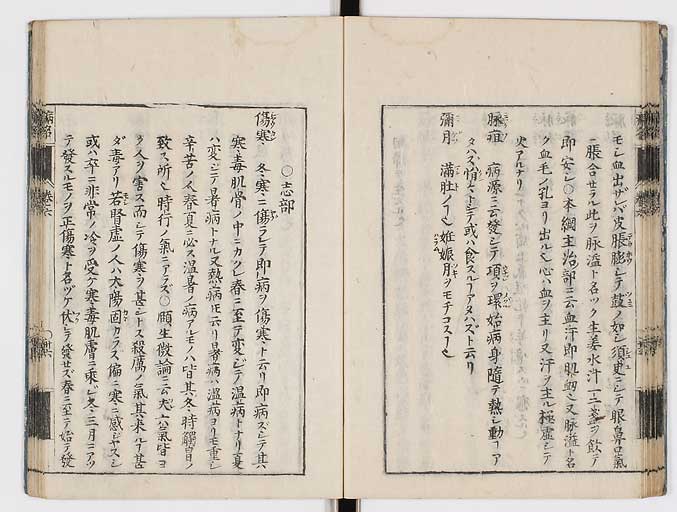 モシ血出ザレバ皮脹膨シテ鼓ノ如シ須臾ニシテ眼鼻口氣
脹合セラル此ヲ脉溢ト名ツク生姜水汁一二盞ヲ飲テ
即安シ〇本綱主治部ニ云血汗即肌衂又脉溢ト名
ク血毛ノ孔ヨリ出ル心ハ血ヲ主リ又汗ヲ主ル極虚シテ
火アルナリ
脉疽 病源ニ云發シテ項ヲ環始病身隨テ熱シ動コア
タハズ惰〻トシテ或ハ食スルコアタハズト云リ
彌月 滿肚ノコ 姙娠月ヲモチコスコ
〇志部
傷寒 冬寒ニ傷ラレテ即病ヲ傷寒ト云リ即病ズシテ其
寒毒肌骨ノ中ニカクレ春ニ至テ変ジテ温病トナリ夏
ハ変シテ暑病トナル又熱病トモ云リ暑病ハ温病ヨリモ重シ
辛苦ノ人春夏ニ必ス温暑ノ病アルモノハ皆其冬時觸冒ノ
致ス所 時行ノ氣ニアラズ〇頤生微論ニ云六氣皆ヨ
ク人ヲ害ス而シテ傷寒ヲ甚シトス殺厲ノ氣其来ルコ甚
ダ毒アリ若腎虚ノ人ハ太陽固カラズ偏ニ寒ニ感ジヤスシ
或ハ卒ニ非常ノ冷ヲ受ケ寒毒肌膚ニ乗ジ冬三月ニアツ
テ發スルモノヲ正傷寒ト名ヅケ伏シテ發セズ春ニ至テ始テ發